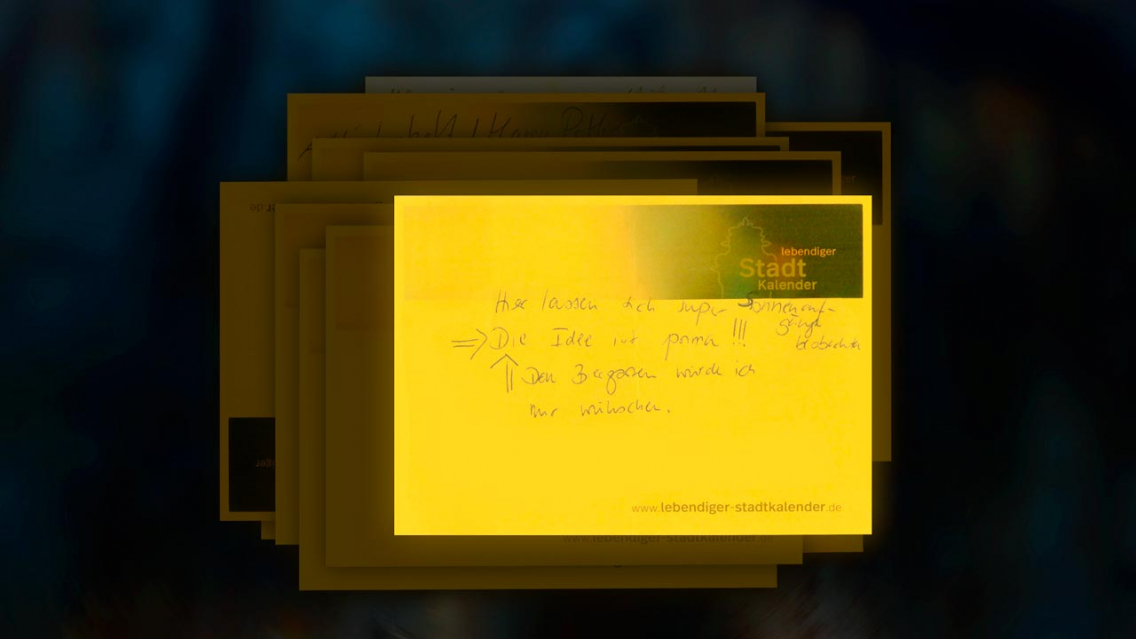 lebendiger
Stadt
Kalender
Hier lassen sich super Sonnenauf-
gänge
beobachten
=> Die Idee ist prima !!!
Den Biergarten würde ich
mir wünschen.
www.lebendiger-stadtkalender.de
www.lebendiger-stadtkalender.de